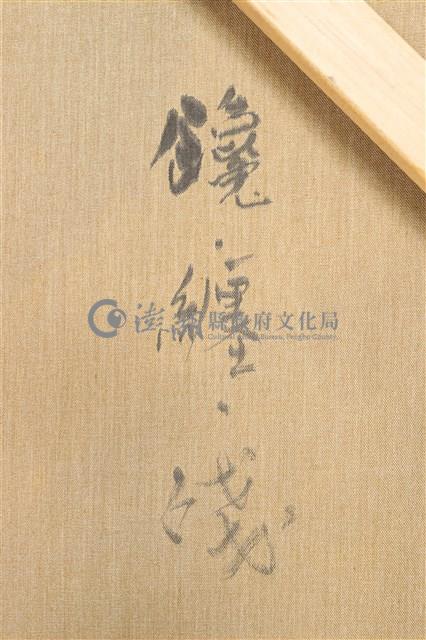 饞·纏·淺
澎湖縣政府文化局
Cultural Affairs Bureau, Penghu County